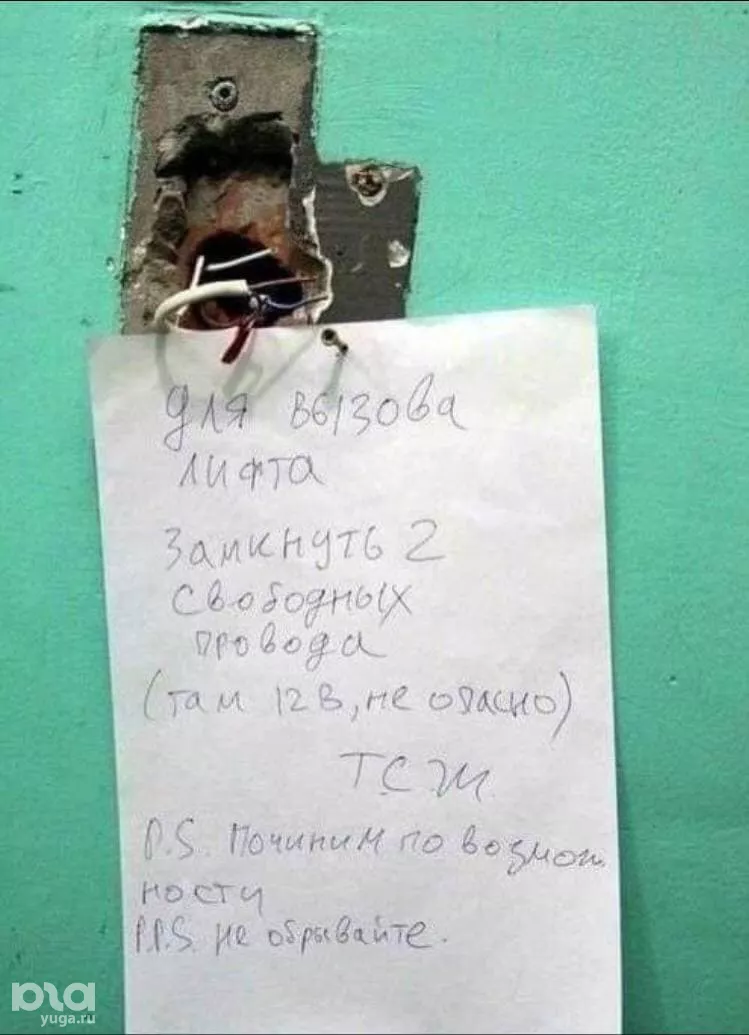 для вызова
лифта
замкнуть 2
свободных
провода
(там 12В, не опасно)
ТСЖ
P.S. Починим по возмож
ности
P.P.S. не обрывайте.
yuga.ru